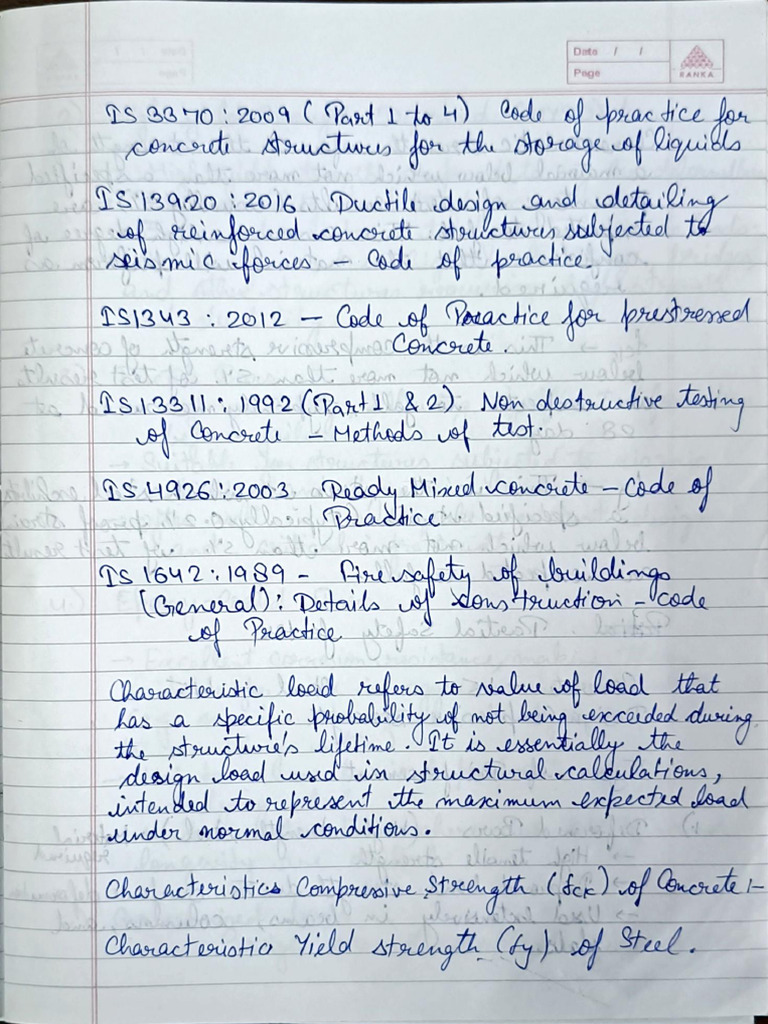 Date / /
Page
KANKA
IS 3370 : 2009 ( Part 1 to 4) Code of practice for
concrete structures for the storage of liquids
IS 13920 : 2016 Ductile design and detailing
of reinforced concrete structures subjected to
seismic forces – Code of practice.
IS1343 : 2012 – Code of Practice for prestressed
Concrete.
IS 13311 : 1992 (Part 1 & 2). Non destructive testing
of Concrete – Methods of test.
IS 4926 : 2003 Ready Mixed concrete – Code of
Practice
IS 1642 : 1989 - Fire safety of buildings
(General) : Details of construction – code
of Practice
Characteristic load refers to value of load that
has a specific probability of not being exceeded during
the structure's lifetime. It is essentially the
design load used in structural calculations,
intended to represent the maximum expected load
under normal conditions.
Characteristics Compressive Strength (fck) of Concrete :-
Characteristic Yield strength (fy) of Steel.